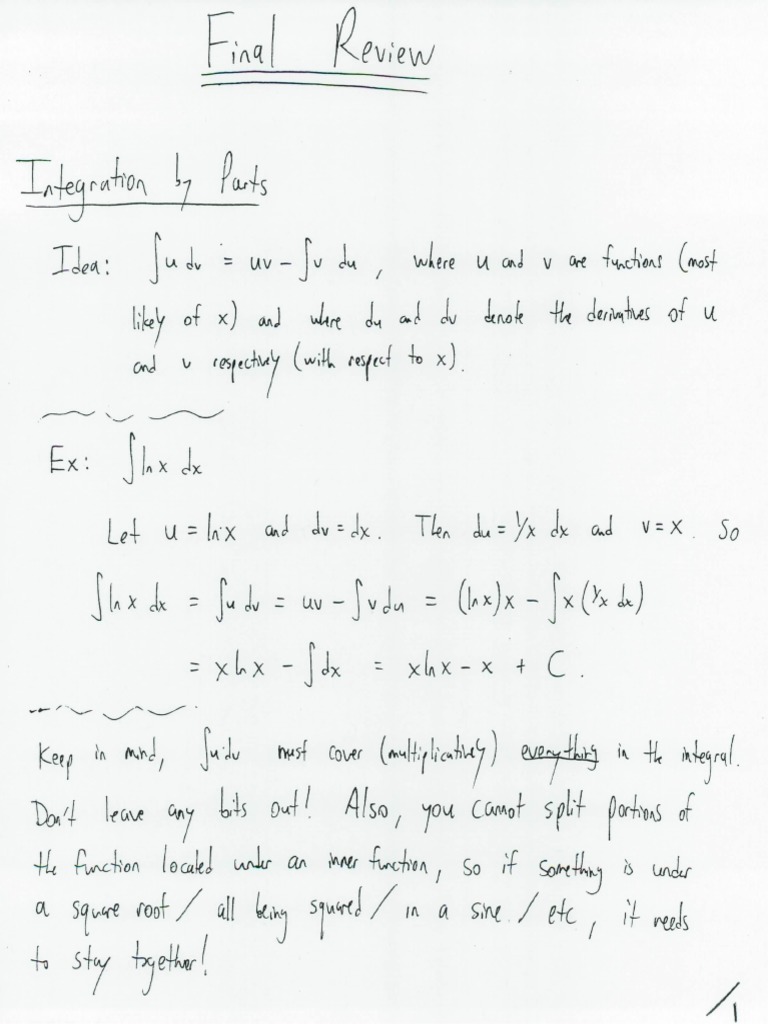 Final Review
Integration by Parts
Idea: ∫u dv = uv - ∫v du, where u and v are functions (most
likely of x) and where du and dv denote the derivatives of u
and v respectively (with respect to x).
Ex: ∫ln x dx
Let u = ln x and dv = dx. Then du = 1/x dx and v = x. So
∫ln x dx = ∫u dv = uv - ∫v du = (ln x)x - ∫x(1/x dx)
= x ln x - ∫dx = x ln x - x + C.
Keep in mind, ∫u dv must cover (multiplicatively) everything in the integral.
Don't leave any bits out! Also, you cannot split portions of
the function located under an inner function, so if something is under
a square root / all being squared / in a sine / etc, it needs
to stay together!
/1